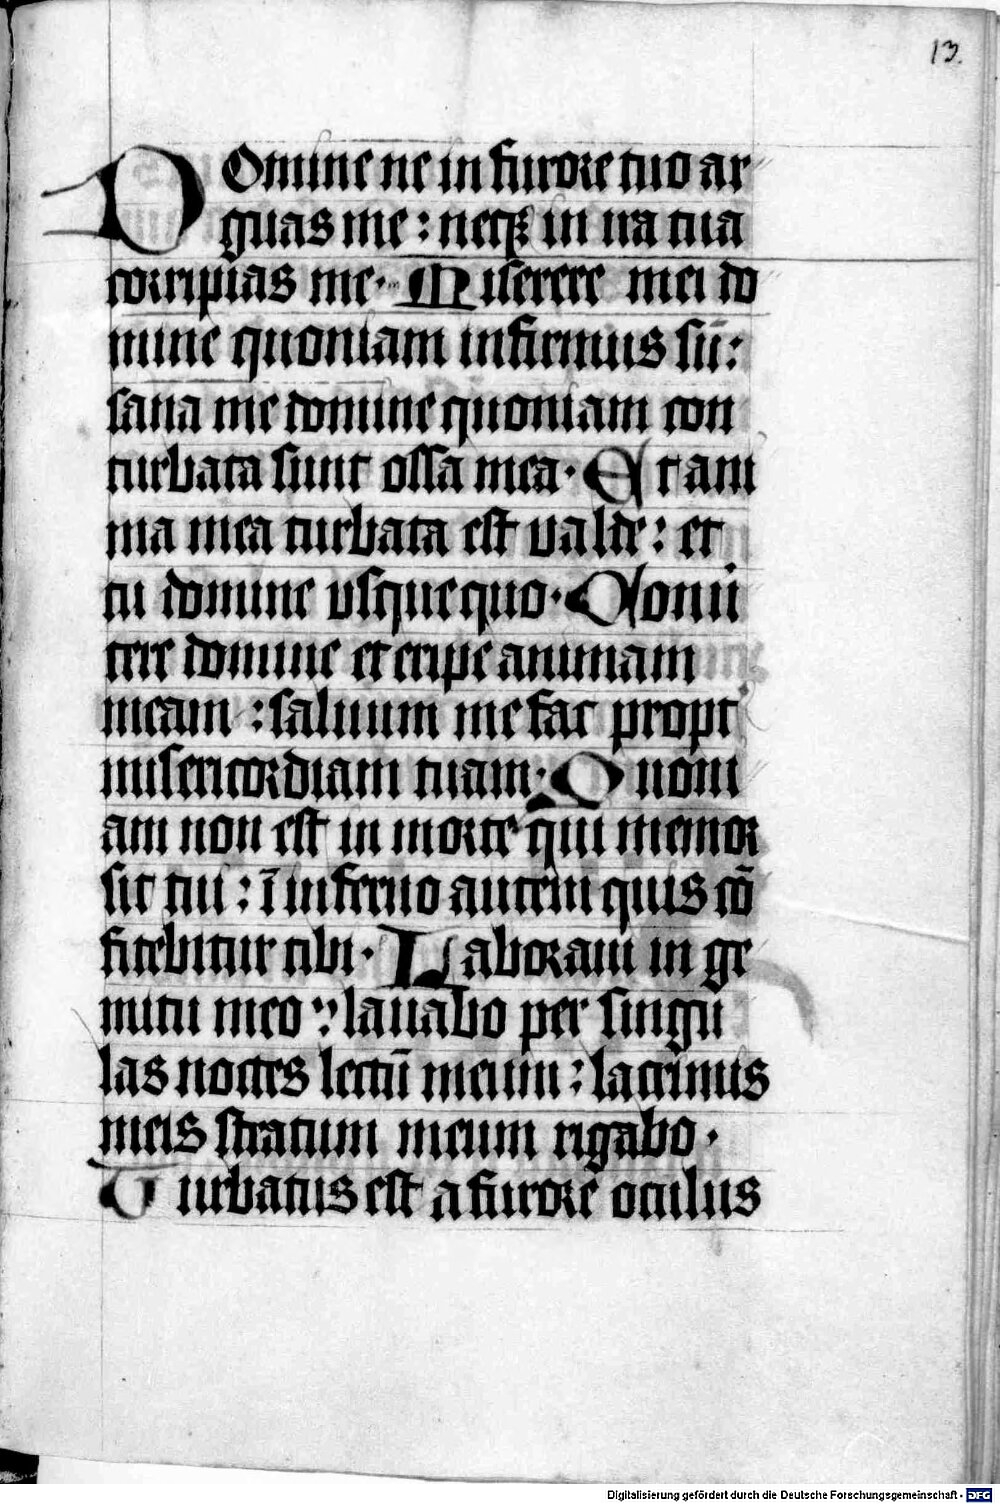 13.
DOmine ne in furore tuo ar
guas me : neqꝫ in ira tua
corripias me · Miserere mei do
mine quoniam infirmus sū :
sana me domine quoniam con
turbata sunt ossa mea · Et ani
ma mea turbata est valde : et
tu domine vsquequo · Conū
tere domine et eripe animam
meam : saluum me fac propt
misericordiam tuam · Quoni
am non est in morte qui memor
sit tui : ī inferno autem quis cō
fitebitur tibi · Laboraui in ge
mitu meo lauabo per singu
las noctes lectū meum : lacrimis
meis stratum meum rigabo ·
Turbatus est a furore oculus
Digitalisierung gefördert durch die Deutsche Forschungsgemeinschaft - DFG